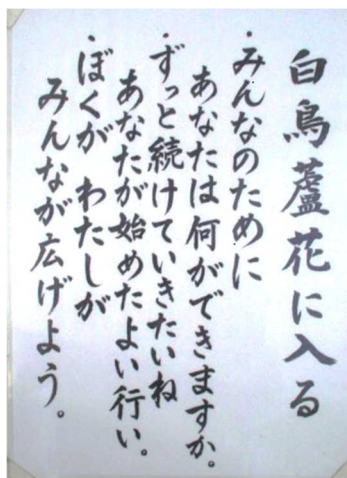 白鳥蘆花に入る
・みんなのために
あなたは何ができますか。
・ずっと続けていきたいね
あなたが始めたよい行い。
・ぼくが わたしが
みんなが広げよう。